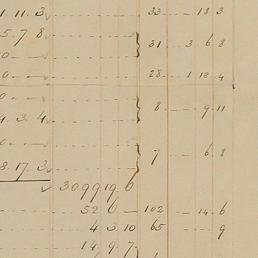 1. 11. 3 33 — 13 3
5. 7. 8
31 . 3 . 6 8
0 —
0 — 28 — 1 10 4
8 — — 9 11
4. 3. 4
0 —
7 — — 6 8
8. 17. 3
3099. 19. 6
52 6 — 102 — 14. 6
4. 3. 10 65 — — 9
14. 9. 7